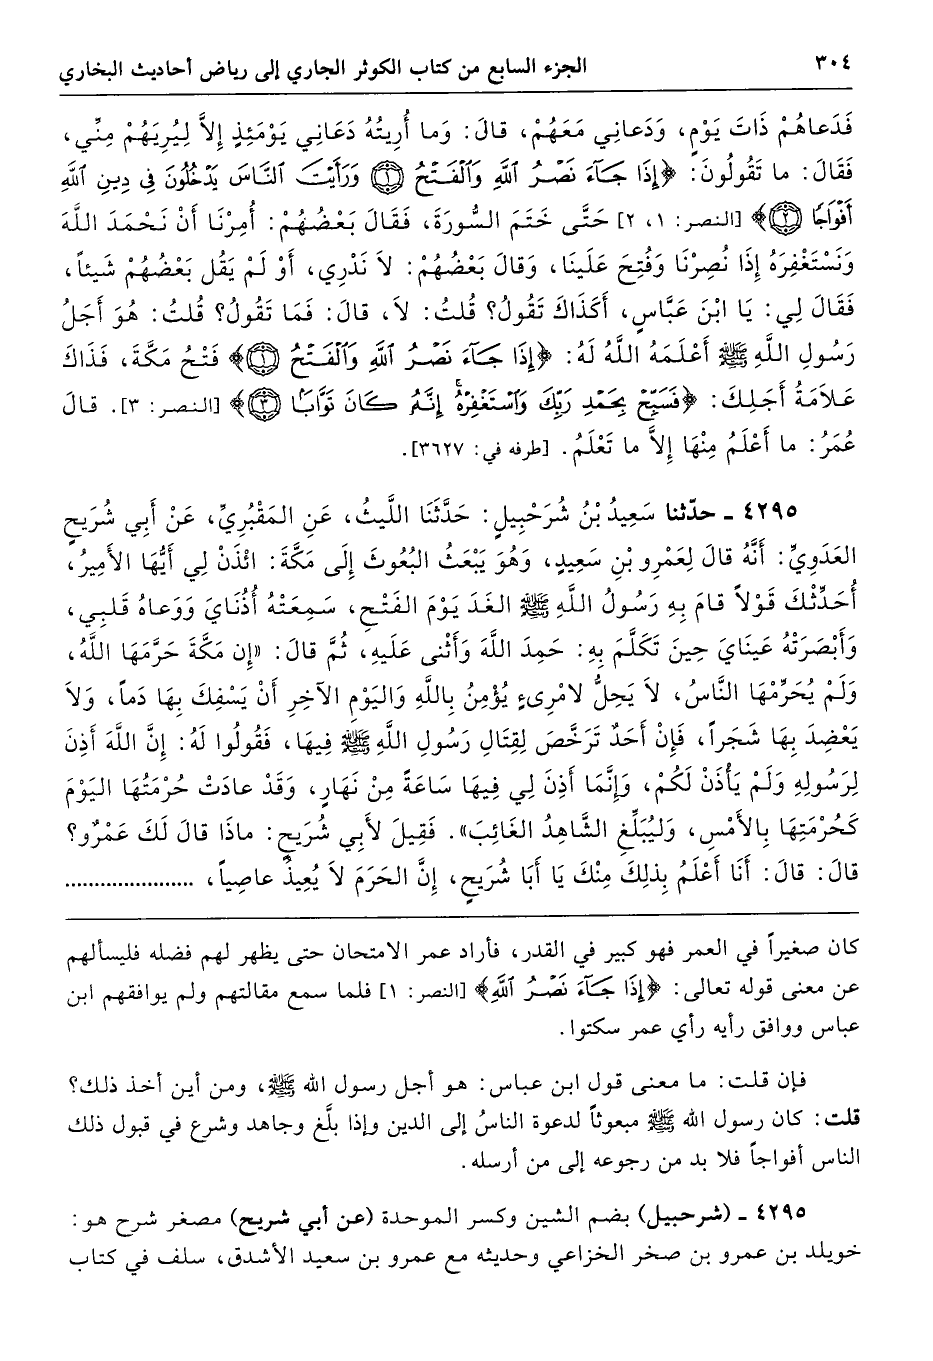 ٣٠٤ الجزء السابع من كتاب الكوثر الجاري إلى رياض أحاديث البخاري
فَدَعاهُمْ ذَاتَ يَوْمٍ، وَدَعانِي مَعَهُمْ، قالَ: وَما أُرِيتُهُ دَعَانِي يَوْمَئِذٍ إِلاَّ لِيُرِيَهُمْ مِنِّي،
فَقَالَ: ما تَقُولُونَ: ﴿إِذَا جَآءَ نَصْرُ ٱللَّهِ وَٱلْفَتْحُ ۝١ وَرَأَيْتَ ٱلنَّاسَ يَدْخُلُونَ فِى دِينِ ٱللَّهِ
أَفْوَاجًا ۝٢﴾ [النصر: ١، ٢] حَتَّى خَتَمَ السُّورَةَ، فَقَالَ بَعْضُهُمْ: أُمِرْنَا أَنْ نَحْمَدَ اللَّهَ
وَنَسْتَغْفِرَهُ إِذَا نُصِرْنَا وَفُتِحَ عَلَينَا، وَقالَ بَعْضُهُمْ: لاَ نَدْرِي، أَوْ لَمْ يَقُل بَعْضُهُمْ شَيئاً،
فَقَالَ لِي: يَا ابْنَ عَبَّاسٍ، أَكَذَاكَ تَقُولُ؟ قُلتُ: لاَ، قالَ: فَمَا تَقُولُ؟ قُلتُ: هُوَ أَجَلُ
رَسُولِ اللَّهِ ﷺ أَعْلَمَهُ اللَّهُ لَهُ: ﴿إِذَا جَآءَ نَصْرُ ٱللَّهِ وَٱلْفَتْحُ ۝١﴾ فَتْحُ مَكَّةَ، فَذَاكَ
عَلاَمَةُ أَجَلِكَ: ﴿فَسَبِّحْ بِحَمْدِ رَبِّكَ وَٱسْتَغْفِرْهُ إِنَّهُۥ كَانَ تَوَّابًا ۝٣﴾ [النصر: ٣]. قالَ
عُمَرُ: ما أَعْلَمُ مِنْهَا إِلاَّ ما تَعْلَمُ. [طرفه في: ٣٦٢٧].
٤٢٩٥ ـ حدّثنا سَعِيدُ بْنُ شُرَحْبِيلٍ: حَدَّثَنَا اللَّيثُ، عَنِ المَقْبُرِيِّ، عَنْ أَبِي شُرَيحٍ
العَدَوِيِّ: أَنَّهُ قالَ لِعَمْرِو بْنِ سَعِيدٍ، وَهُوَ يَبْعَثُ البُعُوثَ إِلَى مَكَّةَ: ائْذَنْ لِي أَيُّهَا الأَمِيرُ،
أُحَدِّثْكَ قَوْلاً قامَ بِهِ رَسُولُ اللَّهِ ﷺ الغَدَ يَوْمَ الفَتْحِ، سَمِعَتْهُ أُذُنَايَ وَوَعاهُ قَلبِي،
وَأَبْصَرَتْهُ عَينَايَ حِينَ تَكَلَّمَ بِهِ: حَمِدَ اللَّهَ وَأَثْنى عَلَيهِ، ثُمَّ قالَ: «إِن مَكَّةَ حَرَّمَهَا اللَّهُ،
وَلَمْ يُحَرِّمْهَا النَّاسُ، لاَ يَحِلُّ لامْرِىءٍ يُؤْمِنُ بِاللَّهِ وَاليَوْمِ الآخِرِ أَنْ يَسْفِكَ بِهَا دَماً، وَلاَ
يَعْضِدَ بِهَا شَجَراً، فَإِنْ أَحَدٌ تَرَخَّصَ لِقِتَالِ رَسُولِ اللَّهِ ﷺ فِيهَا، فَقُولُوا لَهُ: إِنَّ اللَّهَ أَذِنَ
لِرَسُولِهِ وَلَمْ يَأْذَنْ لَكُمْ، وَإِنَّمَا أَذِنَ لِي فِيهَا سَاعَةً مِنْ نَهَارٍ، وَقَدْ عادَتْ حُرْمَتُهَا اليَوْمَ
كَحُرْمَتِهَا بِالأَمْسِ، وَليُبَلِّغِ الشَّاهِدُ الغَائِبَ». فَقِيلَ لأَبِي شُرَيحٍ: ماذَا قالَ لَكَ عَمْرٌو؟
قالَ: قالَ: أَنَا أَعْلَمُ بِذلِكَ مِنْكَ يَا أَبَا شُرَيحٍ، إِنَّ الحَرَمَ لاَ يُعِيذُ عاصِياً، ......................
كان صغيراً في العمر فهو كبير في القدر، فأراد عمر الامتحان حتى يظهر لهم فضله فليسألهم
عن معنى قوله تعالى: ﴿إِذَا جَآءَ نَصْرُ ٱللَّهِ﴾ [النصر: ١] فلما سمع مقالتهم ولم يوافقهم ابن
عباس ووافق رأيه رأي عمر سكتوا.
فإن قلت: ما معنى قول ابن عباس: هو أجل رسول الله ﷺ، ومن أين أخذ ذلك؟
قلت: كان رسول الله ﷺ مبعوثاً لدعوة الناسُ إلى الدين وإذا بلَّغ وجاهد وشرع في قبول ذلك
الناس أفواجاً فلا بد من رجوعه إلى من أرسله.
٤٢٩٥ ـ (شرحبيل) بضم الشين وكسر الموحدة (عن أبي شريح) مصغر شرح هو:
خويلد بن عمرو بن صخر الخزاعي وحديثه مع عمرو بن سعيد الأشدق، سلف في كتاب